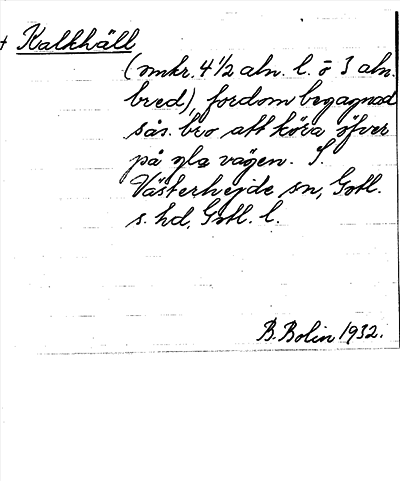 + Kalkhäll
(omkr. 4 1/2 aln. l. o 3 aln.
bred), fordom begagnad
sås. bro att köra öfver
på gla vägen. S.
Västerhejde sn, Gotl.
s. hd, Gotl. l.
B. Bolin 1932.